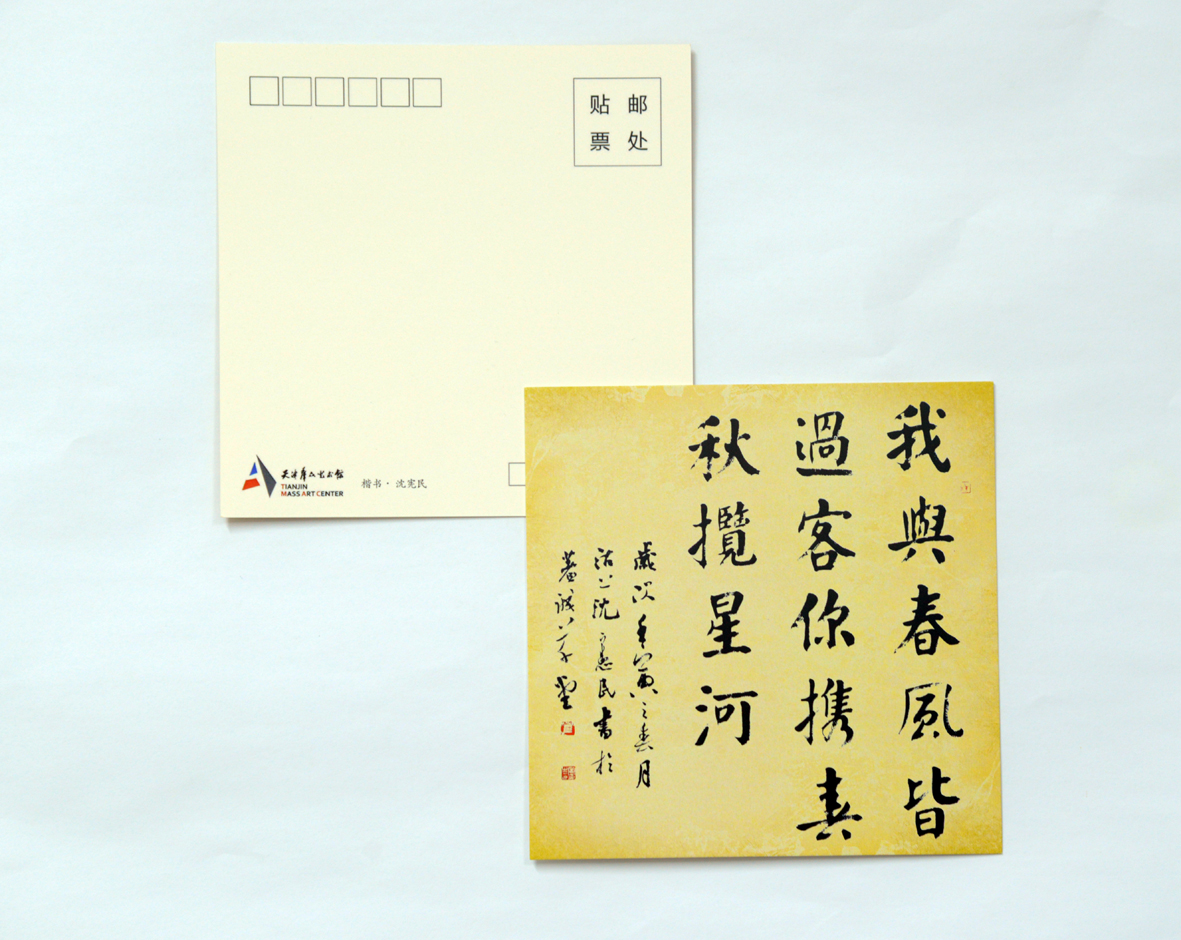 贴 邮
票 处
天津群众艺术馆
TIANJIN
MASS ART CENTER
楷书·沈宪民
我與春風皆
過客你携春
秋攬星河
歲次壬寅之春月
沽上沈憲民書於
草堂